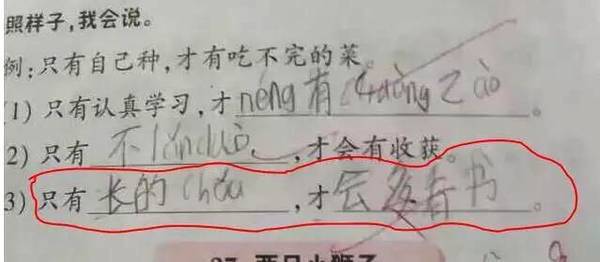 照样子,我会说。
例:只有自己种,才有吃不完的菜。
(1) 只有认真学习,才 néng 有 chuàng zào 。
2) 只有 不 lǎn duò ,才会有收获。
3) 只有 长的 chǒu ,才 会 多 看 书 。
27 两只小狮子